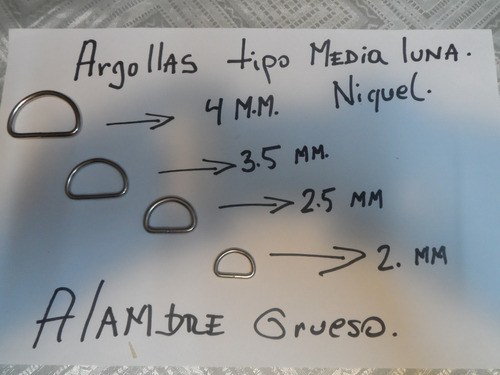 Argollas tipo Media luna.
Niquel.
4 M.M.
3.5 MM.
2.5 MM
2. MM
AlAMBRE Grueso.